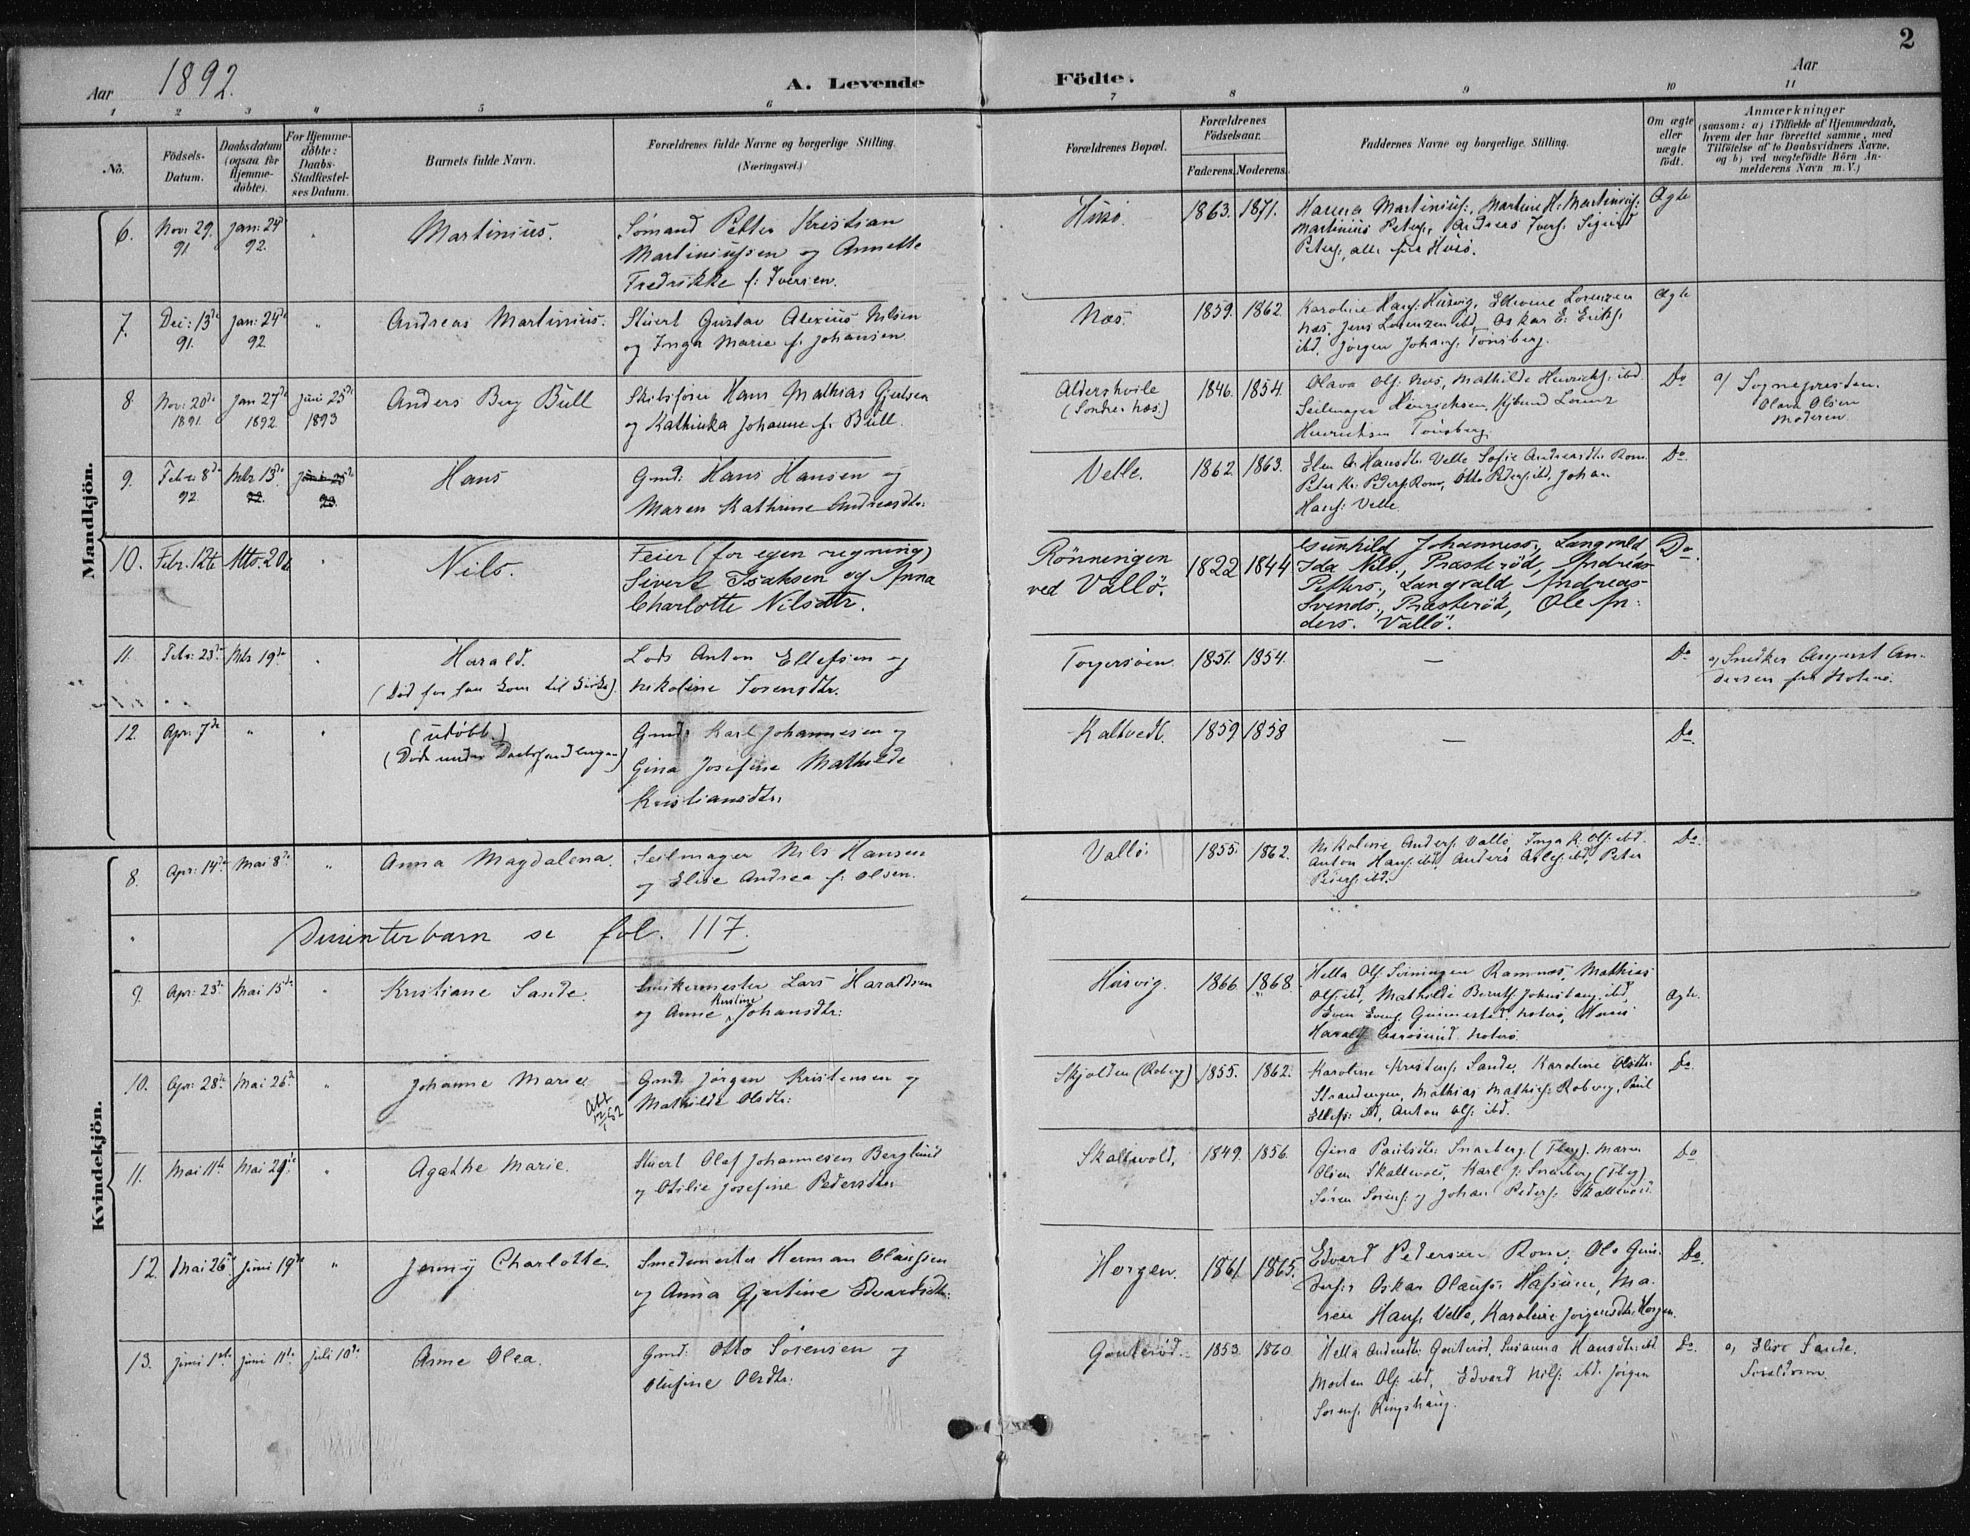 2
Aar 1892.
A. Levende Fødte.
Aar
1 2 3 4 5 6 7 8 9 10 11
No.
Födsels-Datum.
Daabsdatum (ogsaa for Hjemme-döbte).
For Hjemme-döbte: Daabs-Stadfæstel-ses Datum.
Barnets fulde Navn.
Forældrenes fulde Navne og borgerlige Stilling. (Næringsvei.)
Forældrenes Bopæl.
Forældrenes Födselsaar.
Faderens. Moderens.
Faddernes Navne og borgerlige Stilling.
Om ægte eller uægte födt.
Anmærkninger
(saasom: a) i Tilfælde af Hjemmedaab,
hvem der har forrettet samme, med
Tilföielse af to Daabsvidners Navne,
og b) ved uægtefödte Börn An-
melderens Navn m. V.)
Mandkjön.
6. Nov. 29. 91 Jan: 24de 92. " Martinius.
Sømand Petter Kristian
Martiniussen og Annette
Fredrikke f: Iversen.
Husø. 1863. 1871.
Hanna Martinius:, Martine H. Martinius:
Martinius Peters:, Andreas Ivers: Sigurd
Peters:, alle fra Husø.
Ægte
7. Dec: 13de 91. Jan: 24de 92. " Andreas Martinius.
Stuert Gustav Alexius Nilsen
og Inga Marie f. Johansen.
Næs. 1859. 1862.
Karoline Hans: Husvig, Lorenzen
Næs, Jens Lorenzen ibd, Oskar E. Eriks:
ibd. Jørgen Johans: Tønsberg.
Ægte
8 Nov: 20de 1891. Jan 27de 1892. Juni 25de 1893 Anders Berg Bull
Skibsfører Hans Mathias Gjertsen
og Kathinka Johanne f. Bull.
Aldershvile
(Søndre Næs.)
1846. 1854.
Olava Ols: Næs, Mathilde Henriks: ibd.
Seilmager Henrichsen, Lorenz
Henrichsen Tønsberg.
Do
a) Sognepresten.
Olava Olsen
Moderen.
9. Febr: 8de 92. Mts 13de 92. Juni 25de 93. Hans
Gmd: Hans Hansen og
Maren Kathrine Andreasdtr:
Velle. 1862. 1863.
Elen A. Hansdtr. Velle Sofie Andreasdtr. Rom.
Peter Kr. Peders: Rom, Otto Peders: ibd, Johan
Hans: Velle.
Do.
10. Febr. 12te Mts. 20de " Nils.
Feier (for egen regning)
Sivert Isaksen og Anna
Charlotte Nilsdtr.
Rønningen
ved Vallö.
1822 1844
Gunhild Johanness., Langvald,
Ida Nils., Præsterød, Andreas
Petters., Langvald, Andreas
Svends., Præsterød, Ole An-
ders. Vallö.
Do.
11. Febr: 23de Mts 19de " Harald.
(Død før han kom til Kirke).
Lods Anton Ellefsen og
Nikoline Sørensdtr.
Torgersøen. 1851. 1854. — Do
a) Snedker August An-
dersen fra Noterø.
12. Apr: 7de " " (udøbt.)
(Døde under Daabshandlingen)
Gmd: Karl Johannesen og
Gina Josefine Mathilde
Kristiansdtr:
Kaltvedt. 1859 1858 — Do.
Kvindekjön.
8. Apr: 14de Mai 8de " Anna Magdalena.
Seilmager Nils Hansen
og Elise Andrea f: Olsen.
Vallö. 1855. 1862.
Nikoline Anders: Vallö, Inga K. Ols: ibd.
Anton Hans: ibd, Anders ibd, Peter
Peders: ibd.
Do.
" Dissenterbarn se fol. 117.
9. Apr: 23de Mai 15de " Kristiane Sande.
Lars Haraldsen
og Anne Kristine Johansdtr:
Husvig. 1866 1868.
Hella Ols: Ramnæs, Mathias
Ols: ibd, Mathilde ibd,
Even Evens: Noterø, Hans
Haralds: Noterø
Ægte.
10. Apr: 28de Mai 26de " Johanne Marie
Att 12/1 62
Gmd: Jørgen Kristensen og
Mathilde Olsdtr:
Skjolden (Roberg) 1855. 1862.
Karoline Kristens: Sande, Karoline Olsdtr.
Strandengen, Mathias Mathis: Roberg, Paul
Ellefs: ibd, Anton Ols: ibd.
Do.
11. Mai 11te Mai 29de " Agathe Marie.
Stuert Olaf Johannesen Berglund
og Otilie Josefine Pedersdtr:
Skallevold. 1849. 1856.
Gina Paulsdtr: Snarberg (Tbg). Maren
Olsen Skallevold, Karl J: Snarberg (Tbg).
Søren Sørens: og Johan Peders: Skallevold.
Do
12. Mai 26de Juni 19de " Jenny Charlotte.
Smedmester Herman Olaussen
og Anna Gjertine Edvardsdtr:
Horgen. 1861 1865.
Edvard Petersen Rom. Ole Gun-
ders: Oskar Olaus: Hasum, Ma-
ren Hans: Velle, Karoline Jørgensdtr. Horgen.
Do.
13. Juni 1ste Juni 11te Juli 10de Anne Olea.
Gmd: Otto Sørensen og
Olufine Olsdtr:
Gouterød. 1853 1860
Hella Andersdtr: Gouterød, Susanna Hansdtr: ibd
Morten Ols: ibd, Edvard Nils: ibd. Jørgen
Sørens: Ringshaug.
Do.
a) Elise Sande.